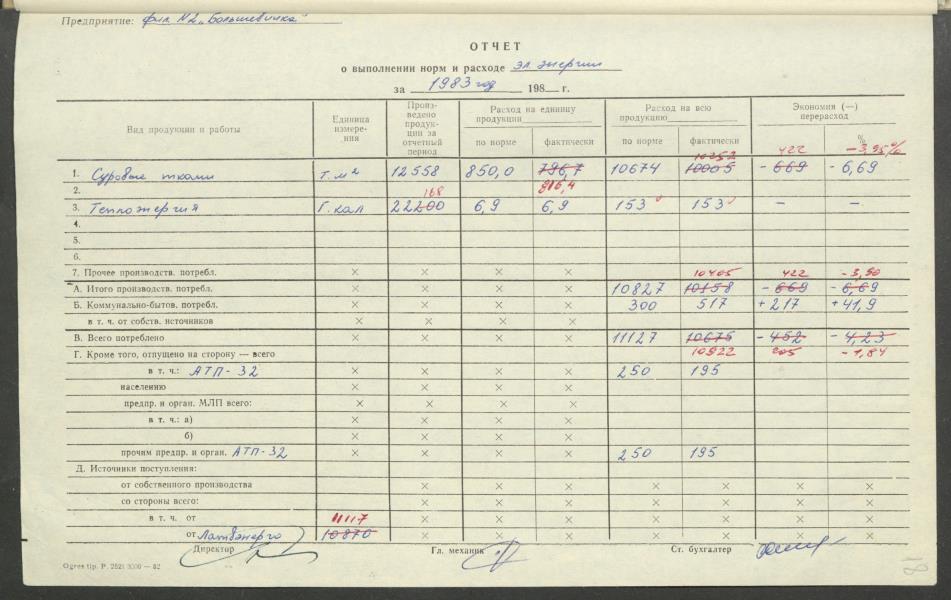 Предприятие: фил. №2 „Большевичка"
ОТЧЕТ
о выполнении норм и расходе эл. энергии
за 1983 год 198 г.
Вид продукции и работы
Единица измерения
Произведено продукции за отчетный период
Расход на единицу продукции
по норме фактически
Расход на всю продукцию
по норме фактически
Экономия (—) перерасход
%
10252 422 -3,95%
1. Суровые ткани т.м² 12558 850,0 796,7 10674 10005 -669 -6,69
2. 168 816,4
3. Теплоэнергия Г.кал 22200 6,9 6,9 153 153 — —
4.
5.
6.
7. Прочее производств. потребл. × × × × 10405 422 -3,90
А. Итого производств. потребл. × × × × 10827 10158 -669 -6,69
Б. Коммунально-бытов. потребл. × × × × 300 517 +217 +41,9
в т. ч. от собств. источников × × × ×
В. Всего потреблено × × × × 11127 10675 -452 -4,23
Г. Кроме того, отпущено на сторону — всего × × × × 10922 205 -1,84
в т. ч.: АТП-32 × × × × 250 195
населению × × × ×
предпр. и орган. МЛП всего: × × × ×
в т. ч.: а) × × × ×
б) × × × ×
прочим предпр. и орган. АТП-32 × × × × 250 195
Д. Источники поступления:
от собственного производства × × × × × × ×
со стороны всего: × × × × × × ×
в т. ч. от 11117 × × × × × × ×
от Латвэнерго 10870 × × × × × × ×
Директор Гл. механик Ст. бухгалтер
Ogres tip. P. 2521 3000 — 82